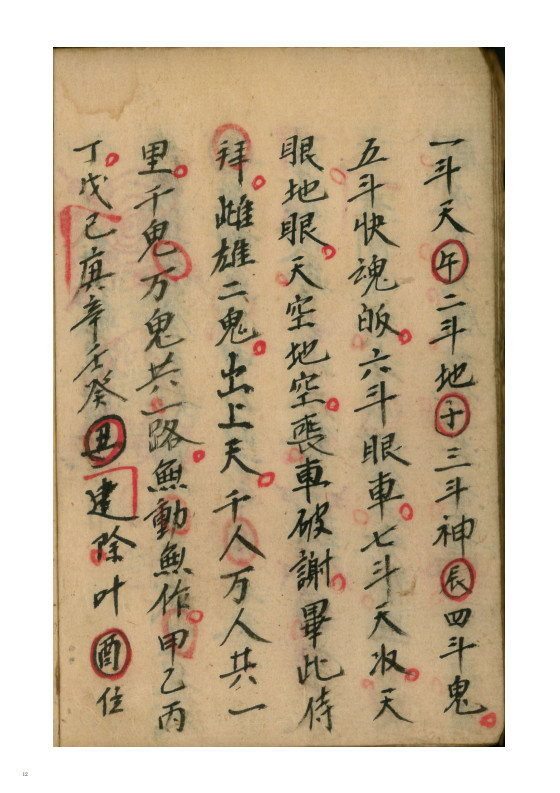 一斗天午二斗地子三斗神辰四斗鬼
五斗快魂皈六斗眼車七斗天收天
眼地眼天空地空喪車破謝畢此侍
拜雌雄二鬼出上天千人万人共一
里千鬼万鬼共一路無動無作甲乙丙
丁戊己庚辛壬癸丑建除叶酉位
12